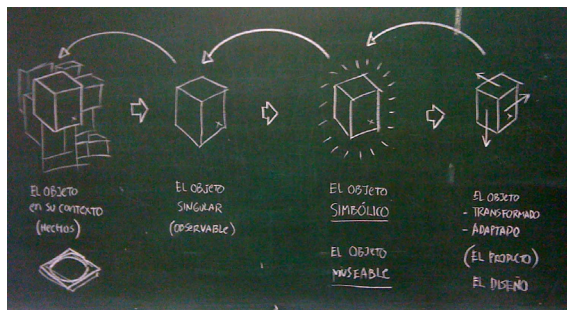 EL OBJETO
en su CONTEXTO
(HECHOS)
EL OBJETO
SINGULAR
(OBSERVABLE)
EL OBJETO
SIMBÓLICO
EL OBJETO
MUSEABLE
EL OBJETO
- TRANSFORMADO
- ADAPTADO
(EL PROYECTO)
EL DISEÑO